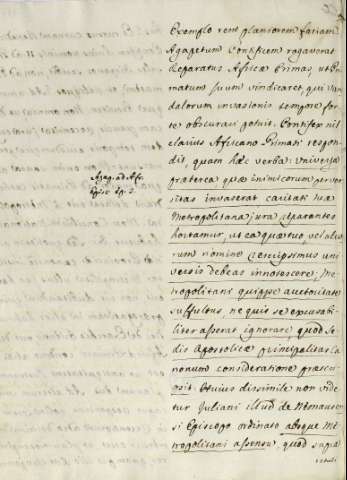 Exemplo rem planiorem faciam.
Agapetum Pontificem rogaverat
Reparatus Africæ Primas, ut Pri
matum suum vindicaret, qui Van
dalorum invasionis tempore for
te obscurari potuit. Pontifex nil
clarius Africano Primati respon
dit, quam hæc verba: Universa
præterea, quæ inimicorum perver
sitas invaserat caritati tuæ
Metropolitana jura reparantes
hortamur, ut ea quæ tuo, vel alio
rum nomine
versis debeas innotescere; Me
tropolitani quippe auctoritate
suffultus ne quis se excusabi
liter asserat ignorare quod Se
dis Apostolicæ principalitas Ca
nonum consideratione præscri
psit. Huius dissimile non vide
tur Juliani illud de Nemausen
si Episcopo ordinato absque Me
tropolitani assensu, quod supra
retuli
Agap. ad Afr.
Episc. Ep. 2.